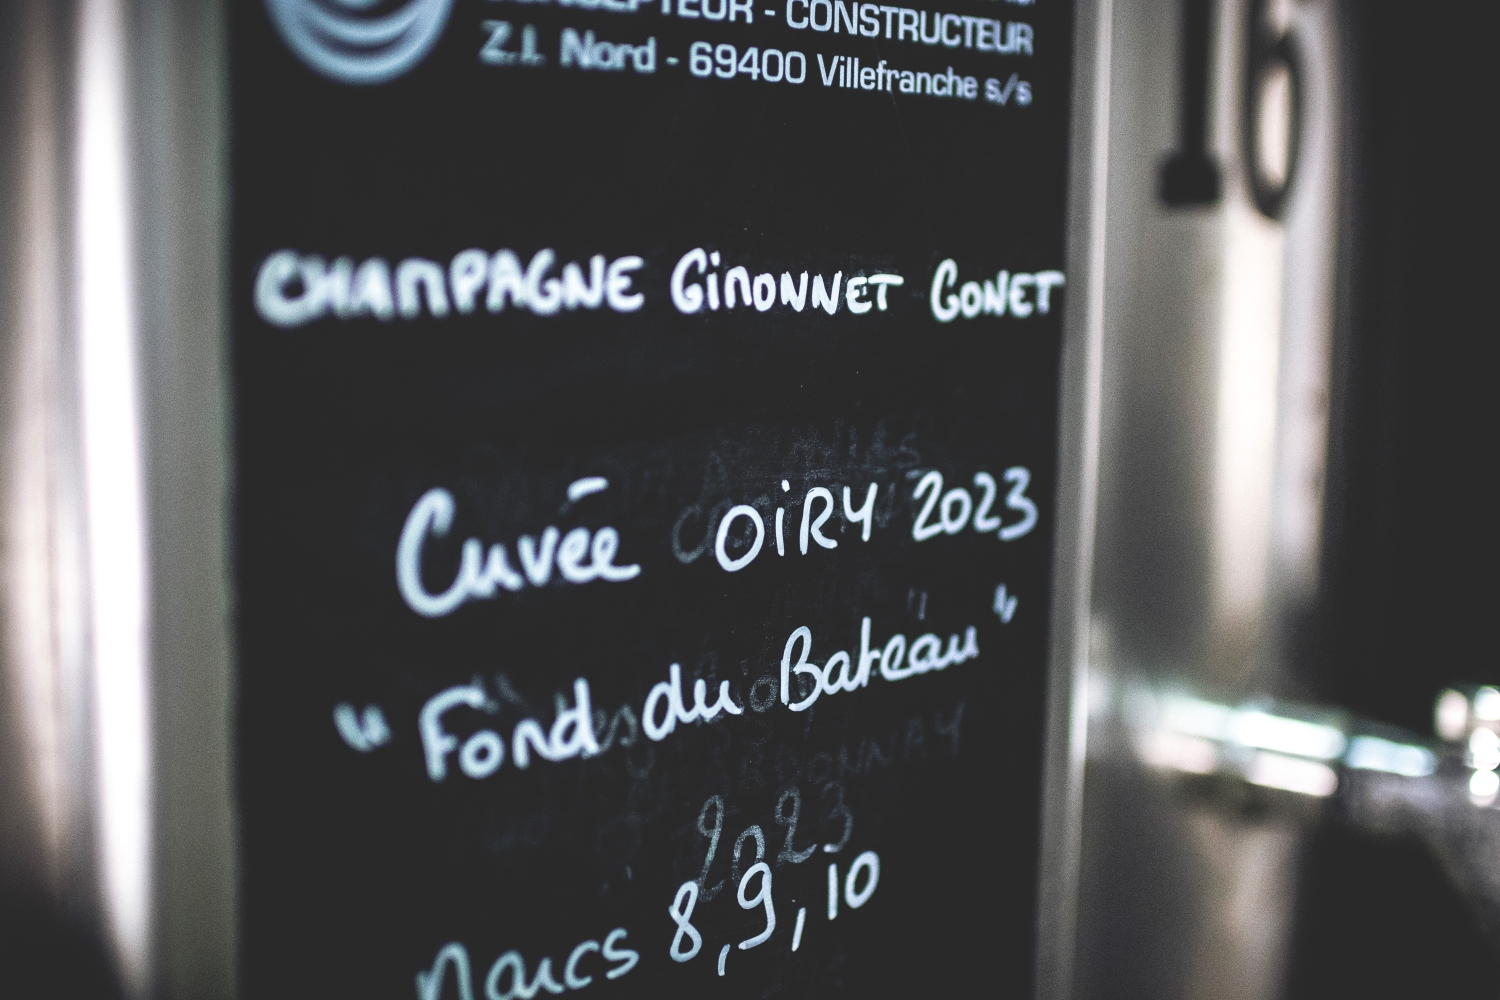 CONCEPTEUR - CONSTRUCTEUR
Z.I. Nord - 69400 Villefranche s/s
CHAMPAGNE GiMONNET GONET
Cuvée OiRY 2023
"Fond du Bateau"
2023
Marcs 8, 9, 10
16